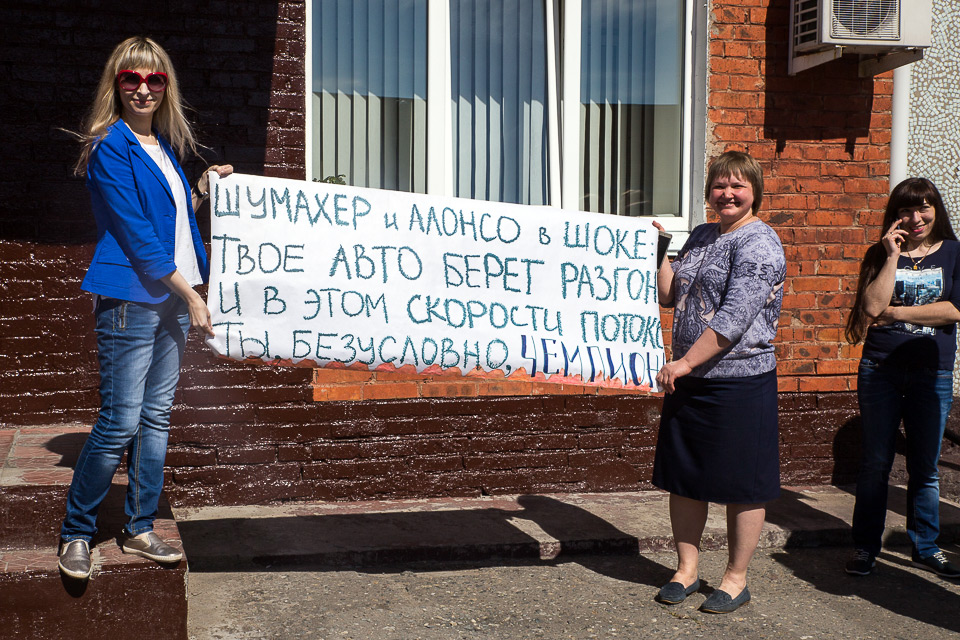 ШУМАХЕР и АЛОНСО в ШОКЕ
ТВОЕ АВТО БЕРЕТ РАЗГОН
И В ЭТОМ СКОРОСТИ ПОТОКЕ
ТЫ, БЕЗУСЛОВНО, ЧЕМПИОН